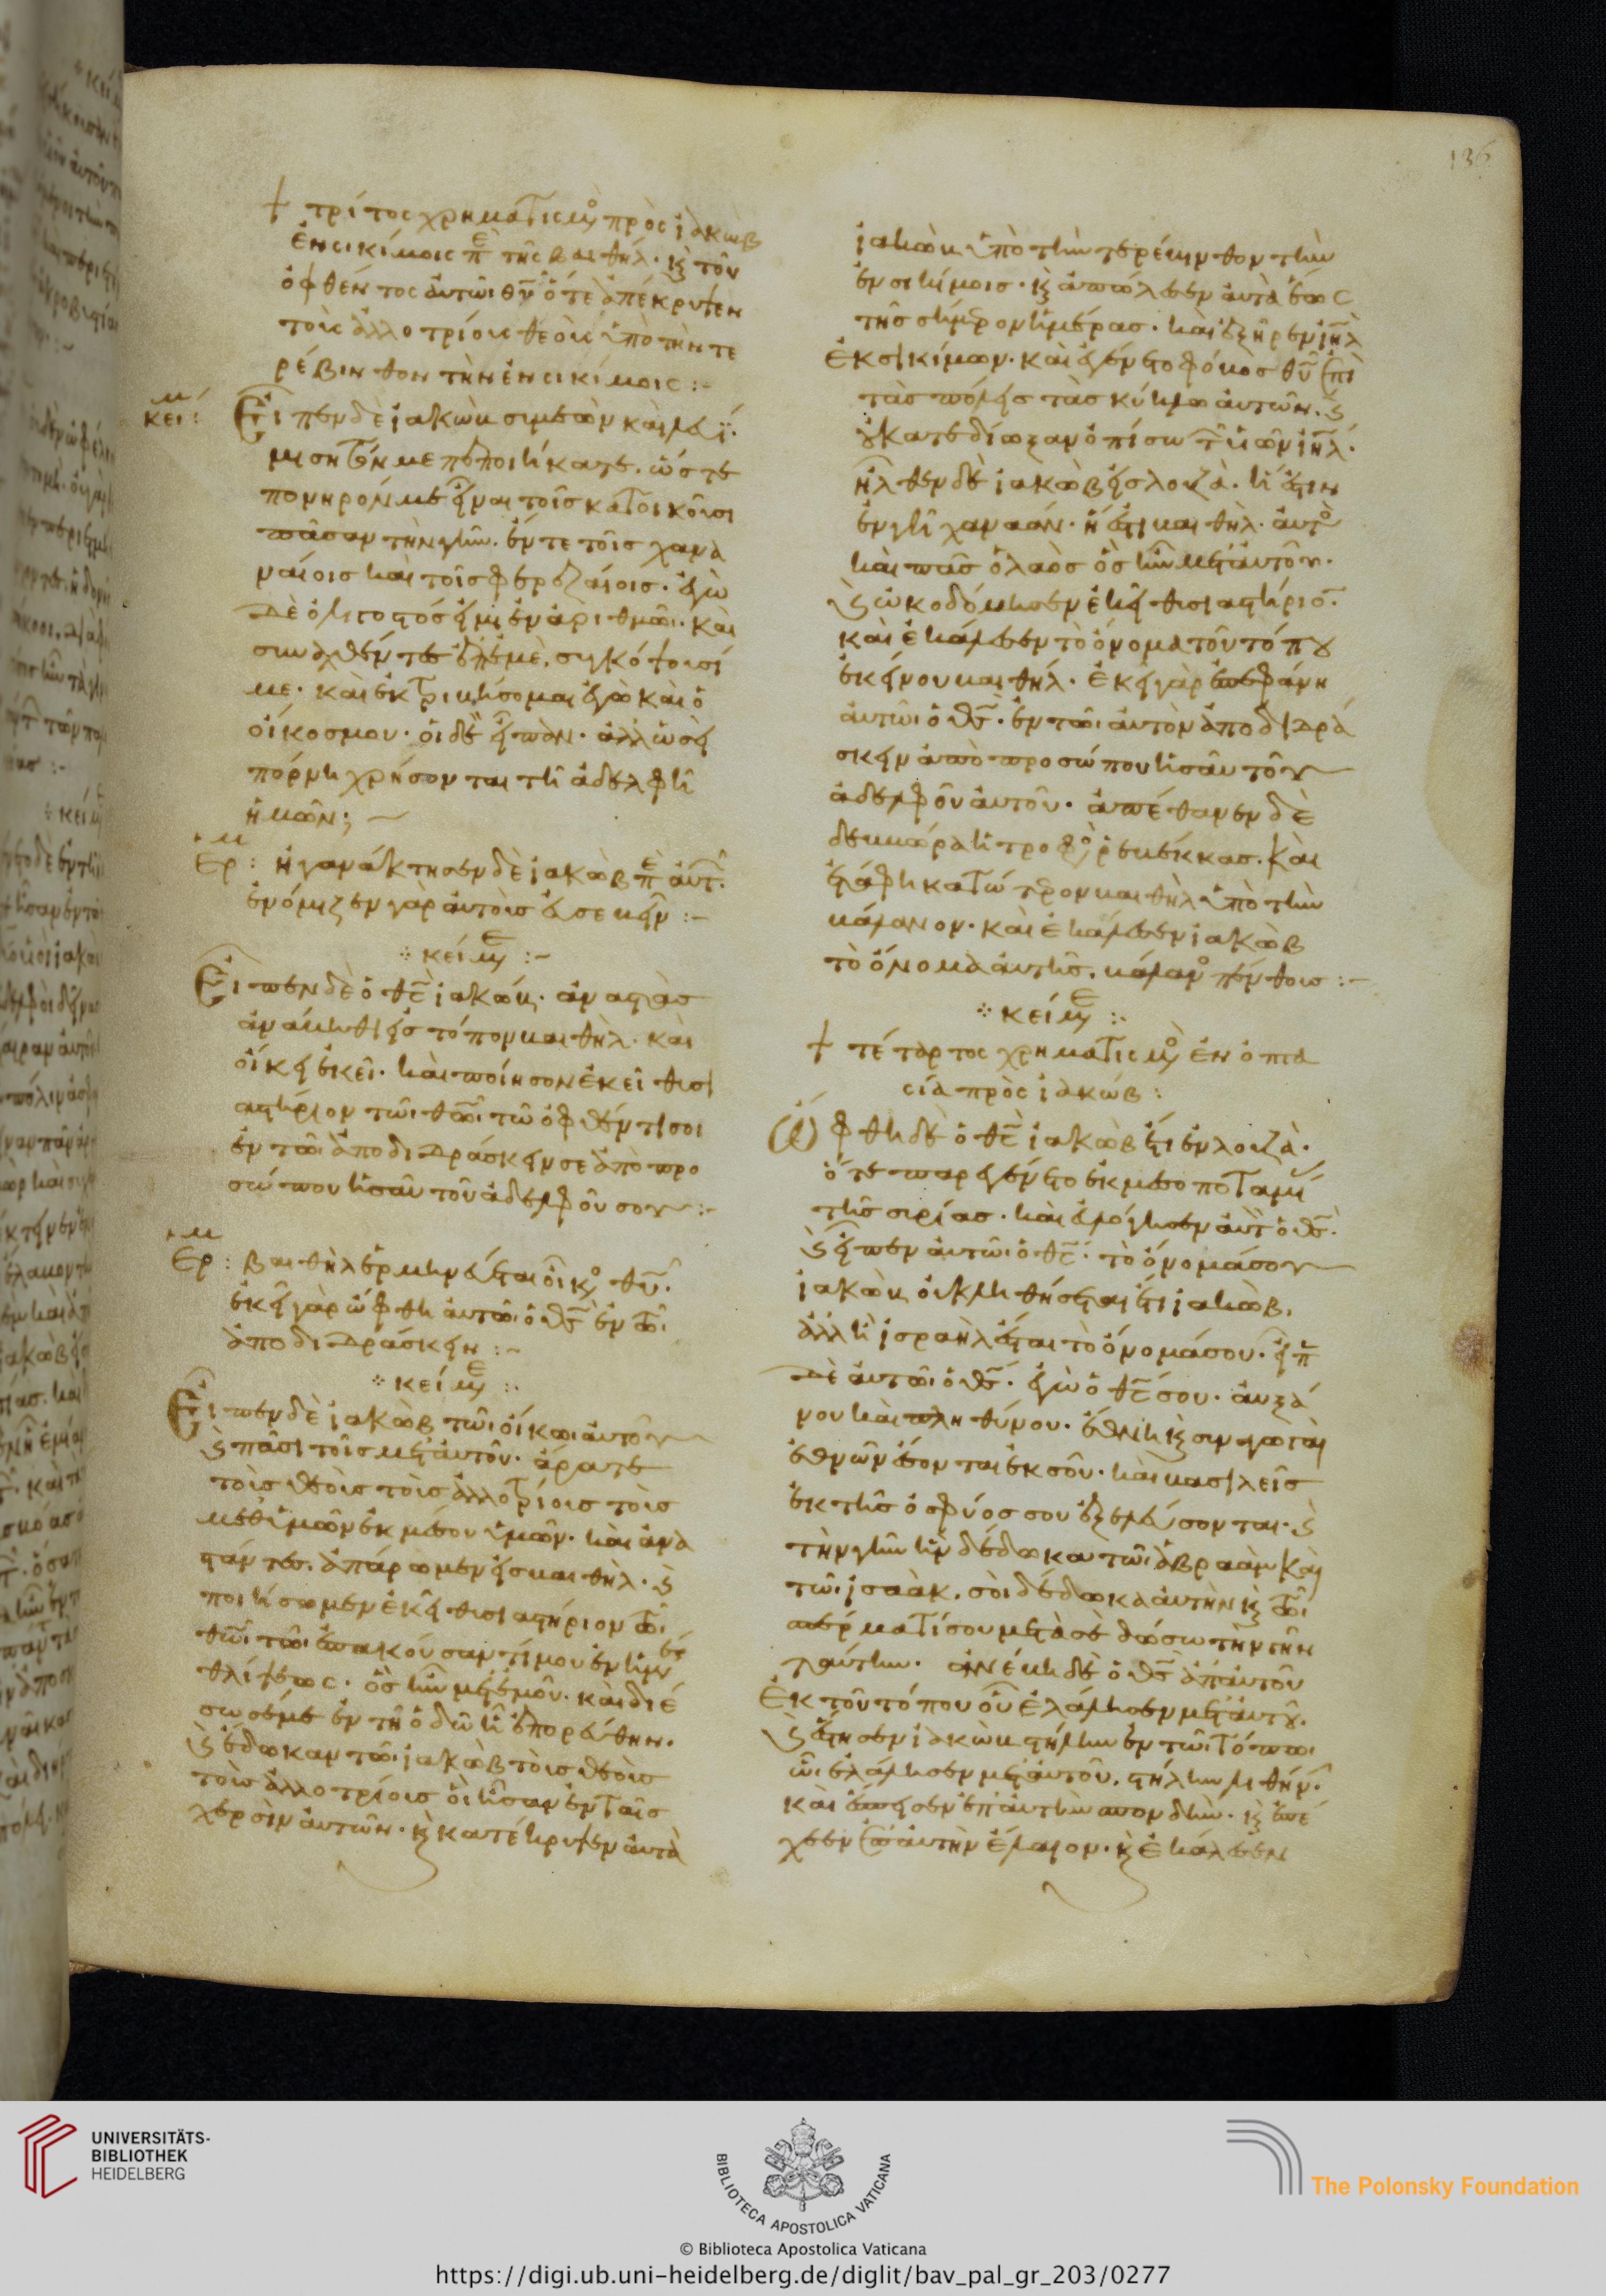 136
+ τρίτος χρηματισμὸ πρὸς ἰακὼβ
ἐν σικίμοις π ε τῆς βαιθήλ. κ τοῦ
ὀφθέντος αὐτῶι θῦ ὅτε ἀπέκρυψεν
τοὺς ἀλλοτρίους θεοὺς ὑπὸ τὴν τε
ρέβινθον τὴν ἐν σικίμοις :-
κει μ :
Εἶπεν δὲ ἰακὼβ συμεὼν καὶ λευί.
μισητόν με πεποιήκατε. ὥστε
πονηρόν με εἶναι τοῖς κατοικοῦσι
πᾶσαν τὴν γῆν. ἔν τε τοῖς χανα
ναίοις καὶ τοῖς φερεζαίοις. ἐγὼ
δὲ ὀλιγοστός εἰμι ἐν ἀριθμῶι. καὶ
συναχθέντες ἐπ' ἐμὲ. συγκόψουσί
με. καὶ ἐκτριβήσομαι ἐγὼ καὶ ὁ
οἶκος μου. οἱ δὲ εἶπαν. ἀλλ' ὡσεὶ
πόρνη χρήσονται τῆ ἀδελφῆ
ἡμῶν; ~
ερ μ : ἠγανάκτησεν δὲ ἰακὼβ π ε αὐτ.
ἐνόμιζεν γὰρ αὐτοὺς εὐσεβεῖν :-
κείμ ε :-
Εἶπεν δὲ ὁ θς ἰακώβ. ἀναστὰς
ἀνάβηθι εἰς τόπον βαιθήλ. καὶ
οἴκει ἐκεῖ. καὶ ποίησον ἐκεῖ θυσι
αστήριον τῶι θῶι τῶ ὀφθέντι σοι
ἐν τῶι ἀποδιδράσκειν σε ἀπὸ προ
σώπου ἡσαῦ τοῦ ἀδελφοῦ σου :-
ερ μ : βαιθὴλ ἑρμηνεύεται οἶκο θῦ.
ἐκεῖ γὰρ ὤφθη αὐτῶι ὁ θς ἐν τῶι
ἀποδιδράσκειν :-
κείμ ε :.
Εἶπεν δὲ ἰακὼβ τῶι οἴκωι αὐτοῦ
κ πᾶσι τοῖς μετ' αὐτοῦ. ἄρατε
τοὺς θεοὺς τοὺς ἀλλοτρίους τοὺς
μεθ' ὑμῶν ἐκ μέσου ὑμῶν. καὶ ἀνα
στάντες. ἀπάρωμεν εἰς βαιθήλ. κ
ποιήσωμεν ἐκεῖ θυσιαστήριον τῶι
θῶι τῶι ἐπακούσαντί μου ἐν ἡμερ
θλίψεως. ὃς ἦν μετ' ἐμοῦ. καὶ διέ
σωσέ με ἐν τῆ ὁδῶ ἧ ἐπορεύθην.
κ ἔδωκαν τῶι ἰακὼβ τοὺς θεοὺς
τοὺς ἀλλοτρίους οἳ ἦσαν ἐν ταῖς
χερσὶν αὐτῶν. κ κατέκρυψεν αὐτὰ
ἰακὼβ ὑπὸ τὴν τερέβινθον τὴν
ἐν σικίμοις. κ ἀπώλεσεν αὐτὰ ἕως
τῆς σήμερον ἡμέρας. καὶ ἐξῆρεν ἰηλ
ἐκ σικίμων. καὶ ἐγένετο φόβος θῦ ἐπὶ
τὰς πόλεις τὰς κύκλω αὐτῶν. κ
οὐ κατεδίωξαν ὀπίσω τ υἱῶν ἰηλ.
ἦλθεν δὲ ἰακὼβ εἰς λουζὰ. ἥ ἐστιν
ἐν γῆ χαναάν. ἥ ἐστι βαιθήλ. αὐτὸ
καὶ πᾶς ὁ λαὸς ὃς ἦν μετ' αὐτοῦ.
κ ὠκοδόμησεν ἐκεῖ θυσιαστήριο.
καὶ ἐκάλεσεν τὸ ὄνομα τοῦ τόπου
ἐκείνου βαιθήλ. ἐκεῖ γὰρ ἐπεφάνη
αὐτῶι ὁ θς. ἐν τῶι αὐτὸν ἀποδιδρά
σκειν ἀπὸ προσώπου ἡσαῦ τοῦ
ἀδελφοῦ αὐτοῦ. ἀπέθανεν δὲ
δεββώρα ἡ τροφὸ ῥεβέκκας. καὶ
ἐτάφη κατώτερον βαιθὴλ ὑπὸ τὴν
βάλανον. καὶ ἐκάλεσεν ἰακὼβ
τὸ ὄνομα αὐτῆς. βάλανο πένθους :-
κείμ ε :.
+ τέταρτος χρηματισμὸ ἐν ὀπτα
σία πρὸς ἰακώβ :
Ὤφθη δὲ ὁ θς ἰακὼβ ἔτι ἐν λουζὰ.
ὅτε παρεγένετο ἐκ μεσοποταμί
τῆς συρίας. καὶ εὐλόγησεν αὐτ ὁ θς.
κ εἶπεν αὐτῶι ὁ θς. τὸ ὄνομά σου
ἰακὼβ οὐ κληθήσεται ἔτι ἰακὼβ.
ἀλλ' ἢ ἰσραὴλ ἔσται τὸ ὄνομά σου. εἶπ
δὲ αὐτῶι ὁ θς. ἐγὼ ὁ θς σου. αὐξά
νου καὶ πληθύνου. ἔθνη κ συναγωγαὶ
ἐθνῶν ἔσονται ἐκ σοῦ. καὶ βασιλεῖς
ἐκ τῆς ὀσφύος σου ἐξελεύσονται. κ
τὴν γῆν ἣν δέδωκα τῶι ἀβραὰμ καὶ
τῶι ἰσαὰκ. σοὶ δέδωκα αὐτὴν κ τῶι
σπέρματί σου μετὰ σὲ δώσω τὴν γῆν
ταύτην. ἀνέβη δὲ ὁ θς ἀπ' αὐτοῦ
ἐκ τοῦ τόπου οὗ ἐλάλησεν μετ' αὐτοῦ.
κ ἔστησεν ἰακὼβ στήλην ἐν τῶι τόπωι
ὧι ἐλάλησεν μετ' αὐτοῦ. στήλην λιθίν.
καὶ ἔσπεισεν ἐπ' αὐτὴν σπονδὴν. κ ἐπέ
χεεν ἐπ' αὐτὴν ἔλαιον. κ ἐκάλεσεν
UNIVERSITÄTS-
BIBLIOTHEK
HEIDELBERG
BIBLIOTECA APOSTOLICA VATICANA
The Polonsky Foundation
© Biblioteca Apostolica Vaticana
https://digi.ub.uni-heidelberg.de/diglit/bav_pal_gr_203/0277